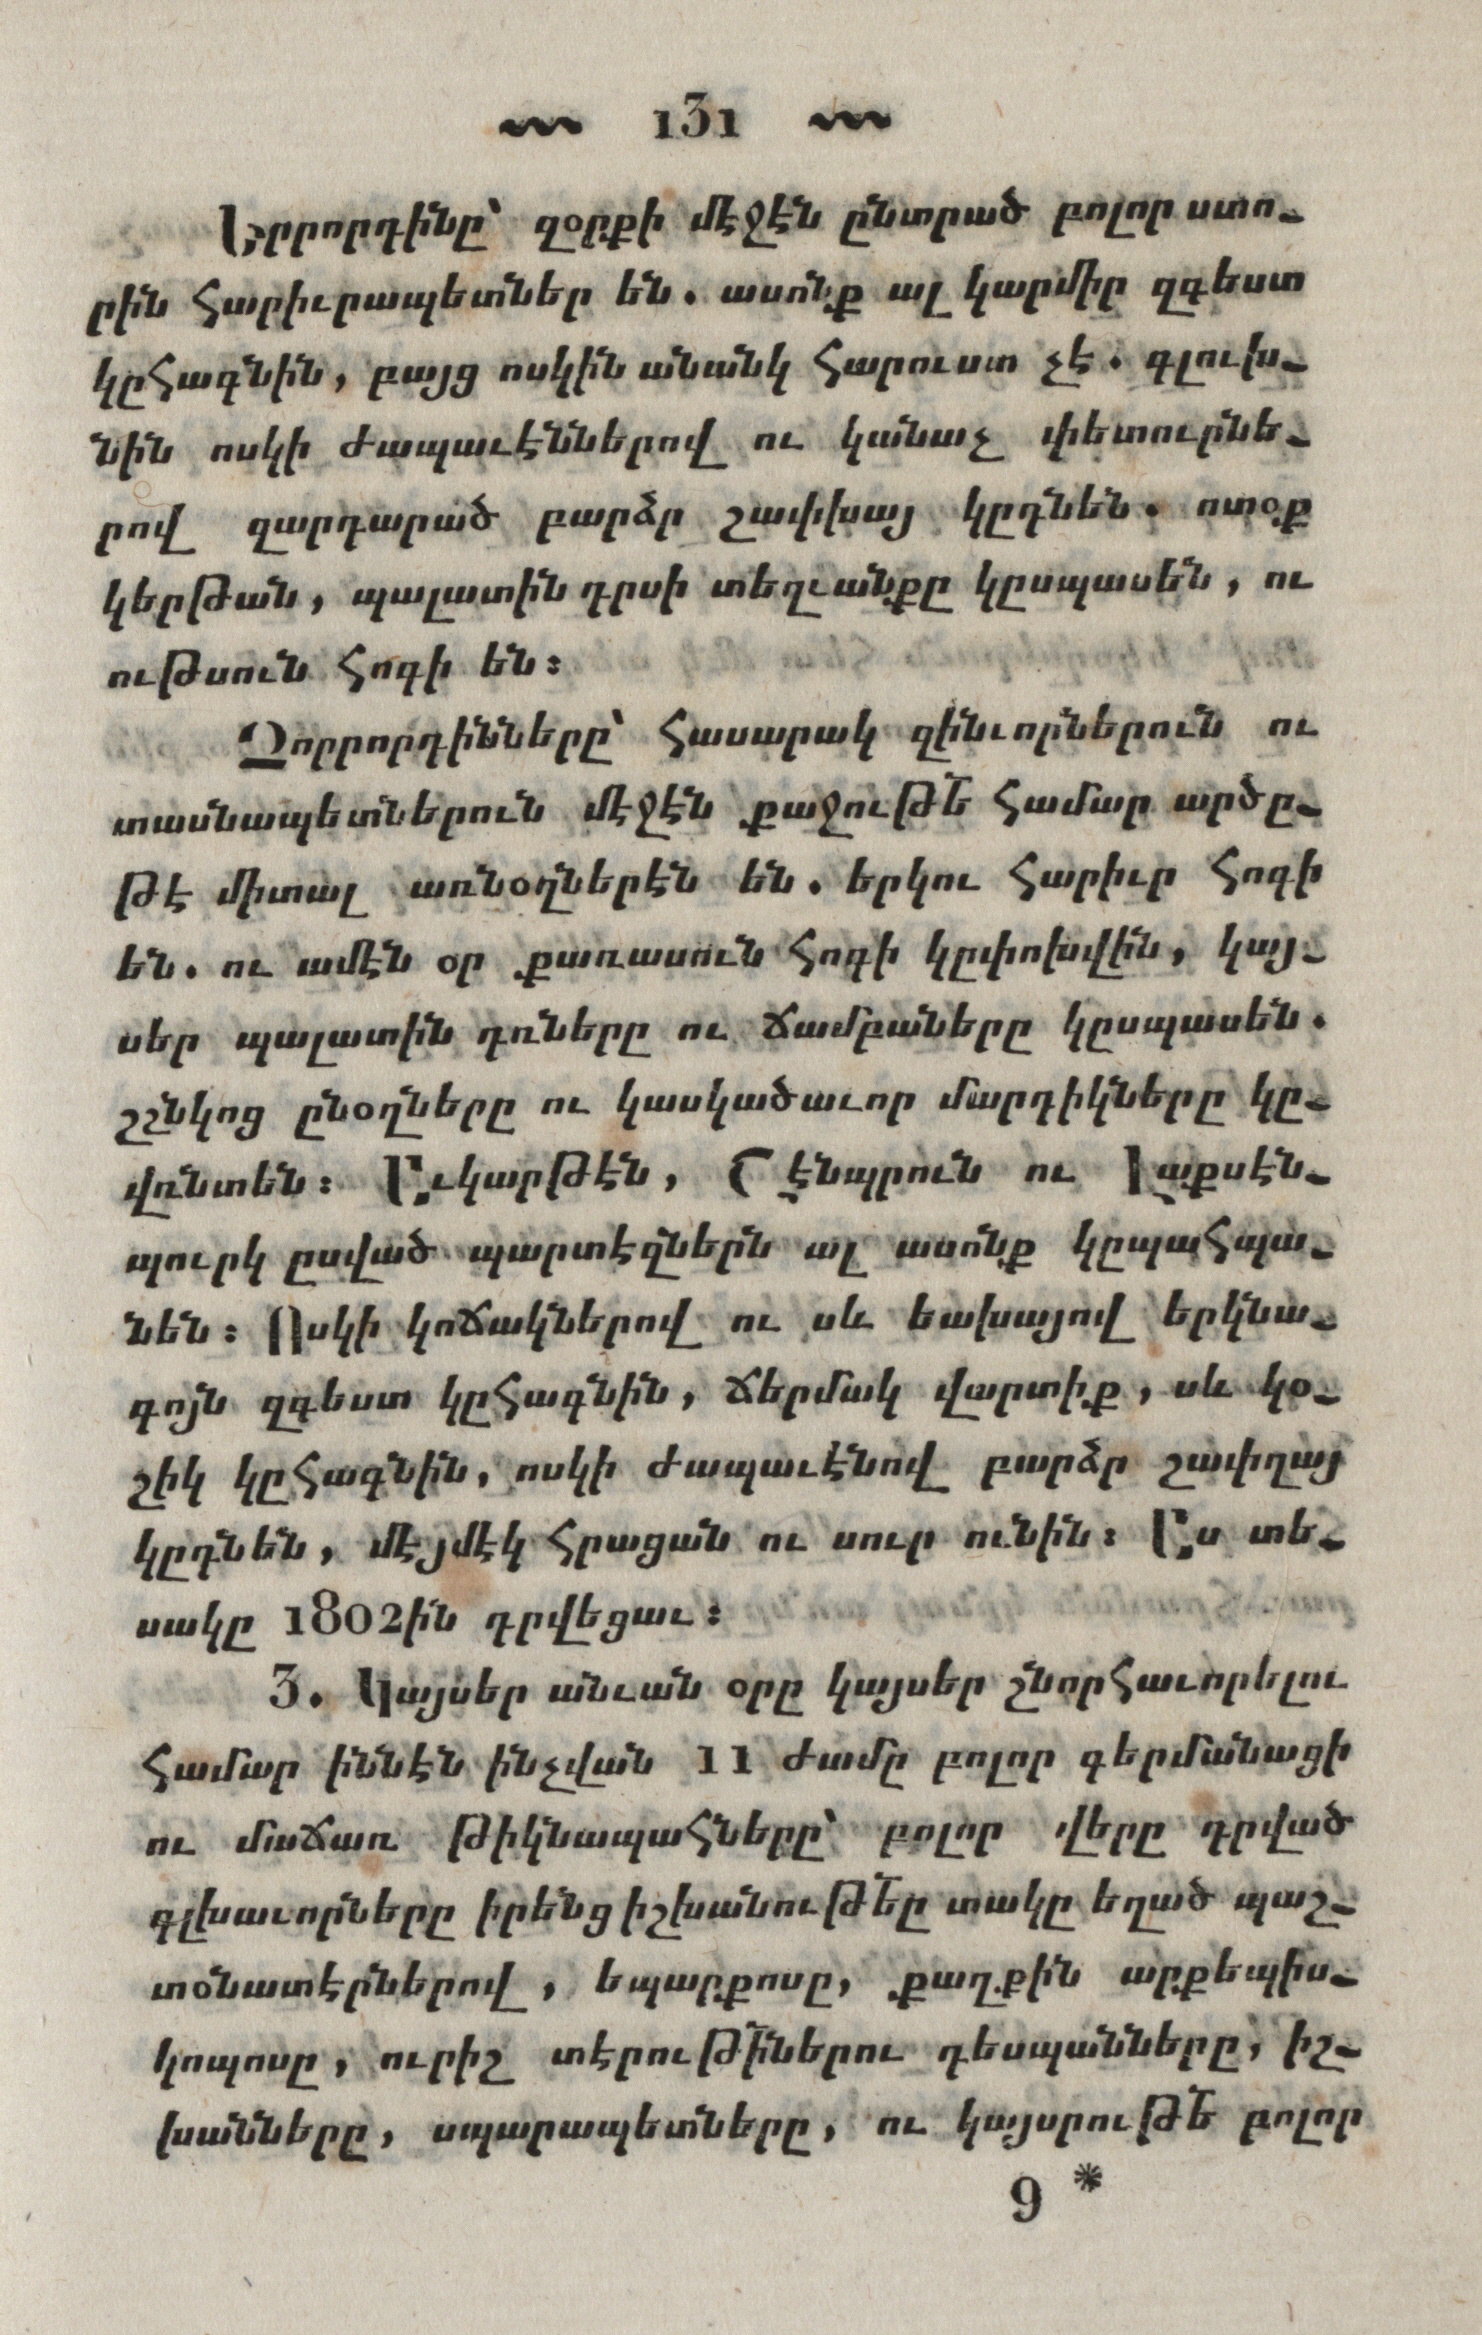 131
Երրորդինը՝ զօրքի մէջէն ընտրած բոլոր ստո֊
րին հարիւրապետներ են. ասոնք ալ կարմիր զգեստ
կըհագնին, բայց ոսկին անանկ հարուստ չէ. գլուխ֊
նին ոսկի ժապաւէններով ու կանաչ փետուրնե֊
րով զարդարած բարձր շափխայ կըդնեն. ոտօք
կերթան, պալատին դրսի տեղւանքը կըսպասեն, ու
ութսուն հոգի են։
Չորրորդինները՝ հասարակ զինւորներուն ու
տասնապետներուն մէջէն քաջութե համար արծը֊
թէ միտալ առնօղներէն են. երկու հարիւր հոգի
են. ու ամէն օր քառասուն հոգի կըփոխվին, կայ֊
սեր պալատին դռները ու ճամբաները կըսպասեն.
շշնկոց ընօղները ու կասկածաւոր մարդիկները կը֊
վռնտեն։ Աւկարթէն, Շէնպրուն ու Լաքսէն֊
պուրկ ըսված պարտէզներն ալ ասոնք կըպահպա֊
նեն։ Ոսկի կոճակներով ու սև եախայով երկնա֊
գոյն զգեստ կըհագնին, ճերմակ վարտիք, սև կօ֊
շիկ կըհագնին, ոսկի ժապաւէնով բարձր շափղայ
կըդնեն, մէյմէկ հրացան ու սուր ունին։ Աս տե֊
սակը 1802ին դրվեցաւ։
3. Կայսեր անւան օրը կայսեր շնորհաւորելու
համար իննէն ինչվան 11 ժամը բոլոր գերմանացի
ու մաճառ թիկնապահները՝ բոլոր վերը դրված
գլխաւորները իրենց իշխանութեը տակը եղած պաշ֊
տօնատէրներով, եպարքոսը, քաղքին արքեպիս֊
կոպոսը, ուրիշ տէրութիներու դեսպանները, իշ֊
խանները, սպարապետները, ու կայսրութե բոլոր
9 *